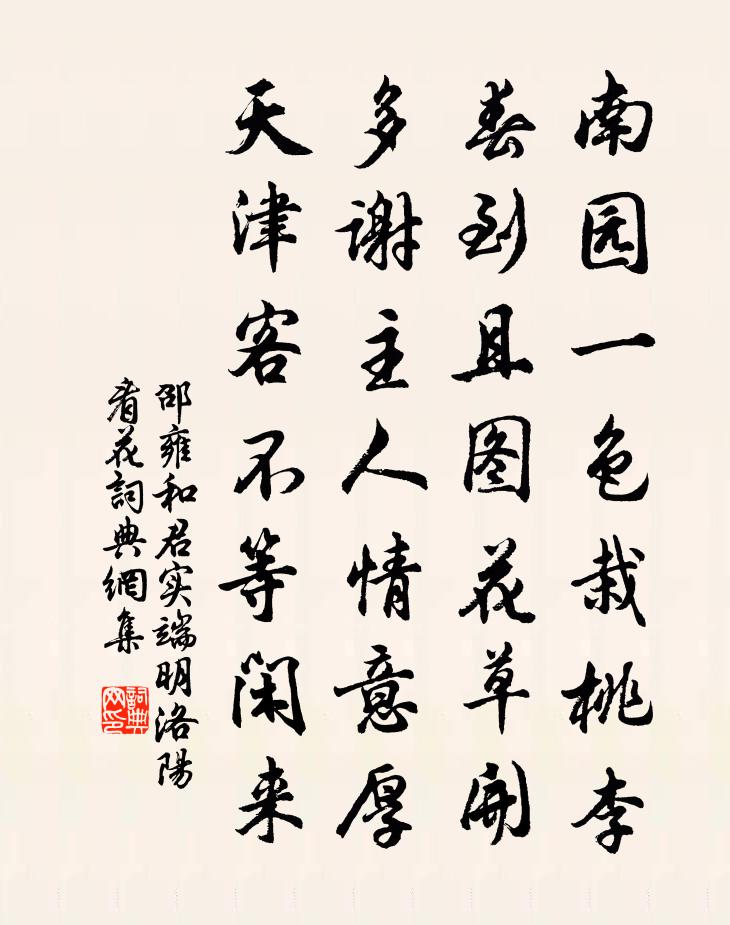 南园一色栽桃李
春到且图花草開
多謝主人情意厚
天津客不等閑来
邵雍和君实端明洛陽
看花詞典網集
詞典網印